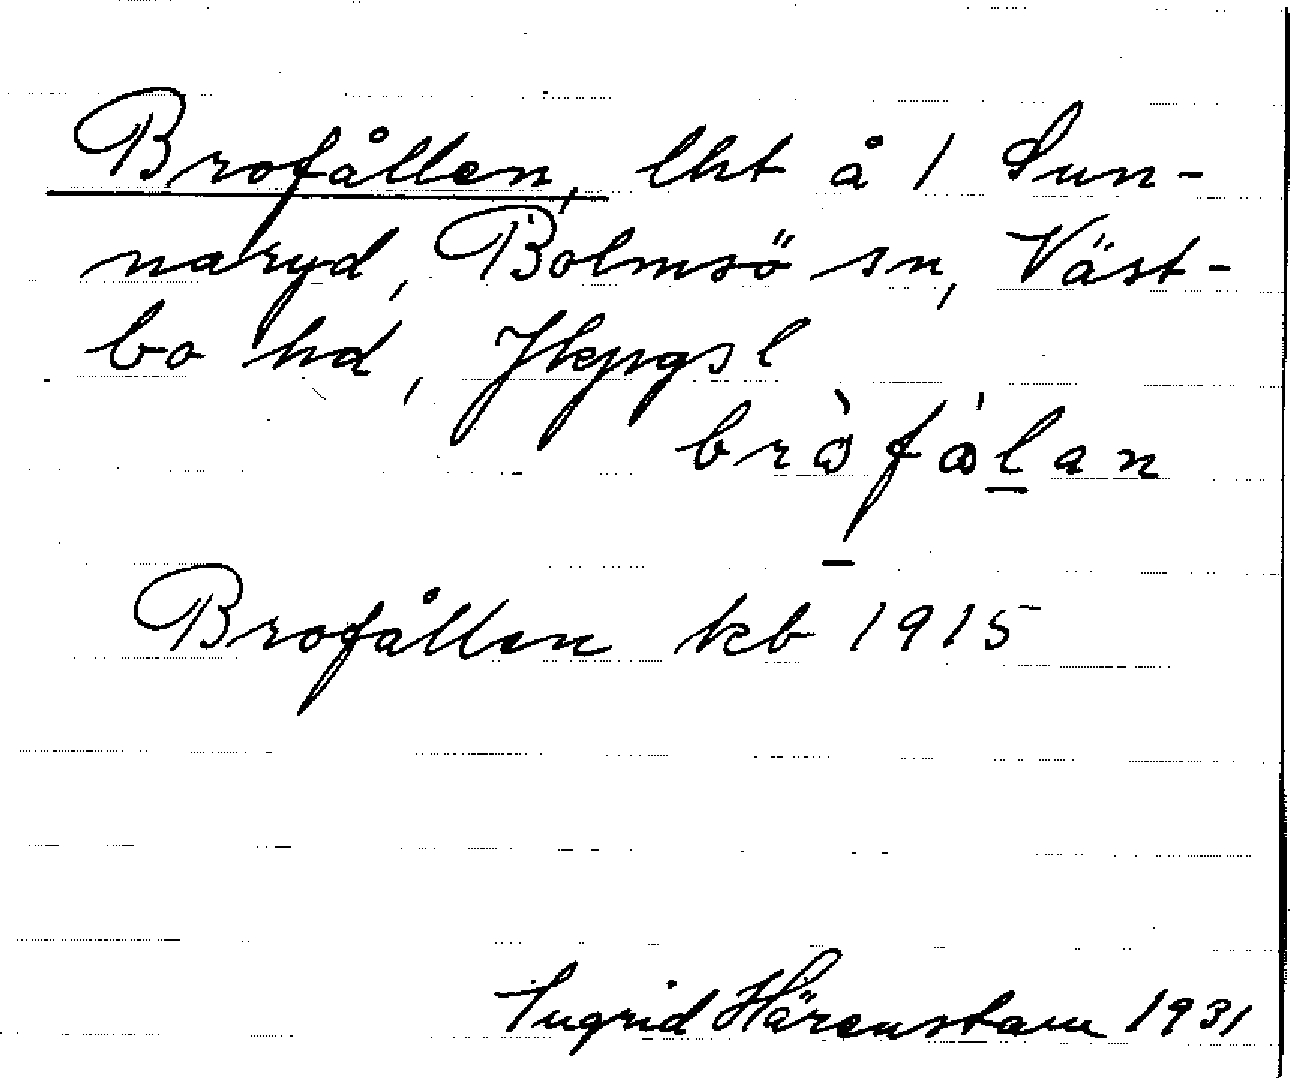 Brofållen, lht å 1 Sun-
naryd, Bolmsö sn, Väst-
bo hd, Jkpgs l
brò̊fålan
Brofållen kb 1915
Ingrid Härenstam 1931